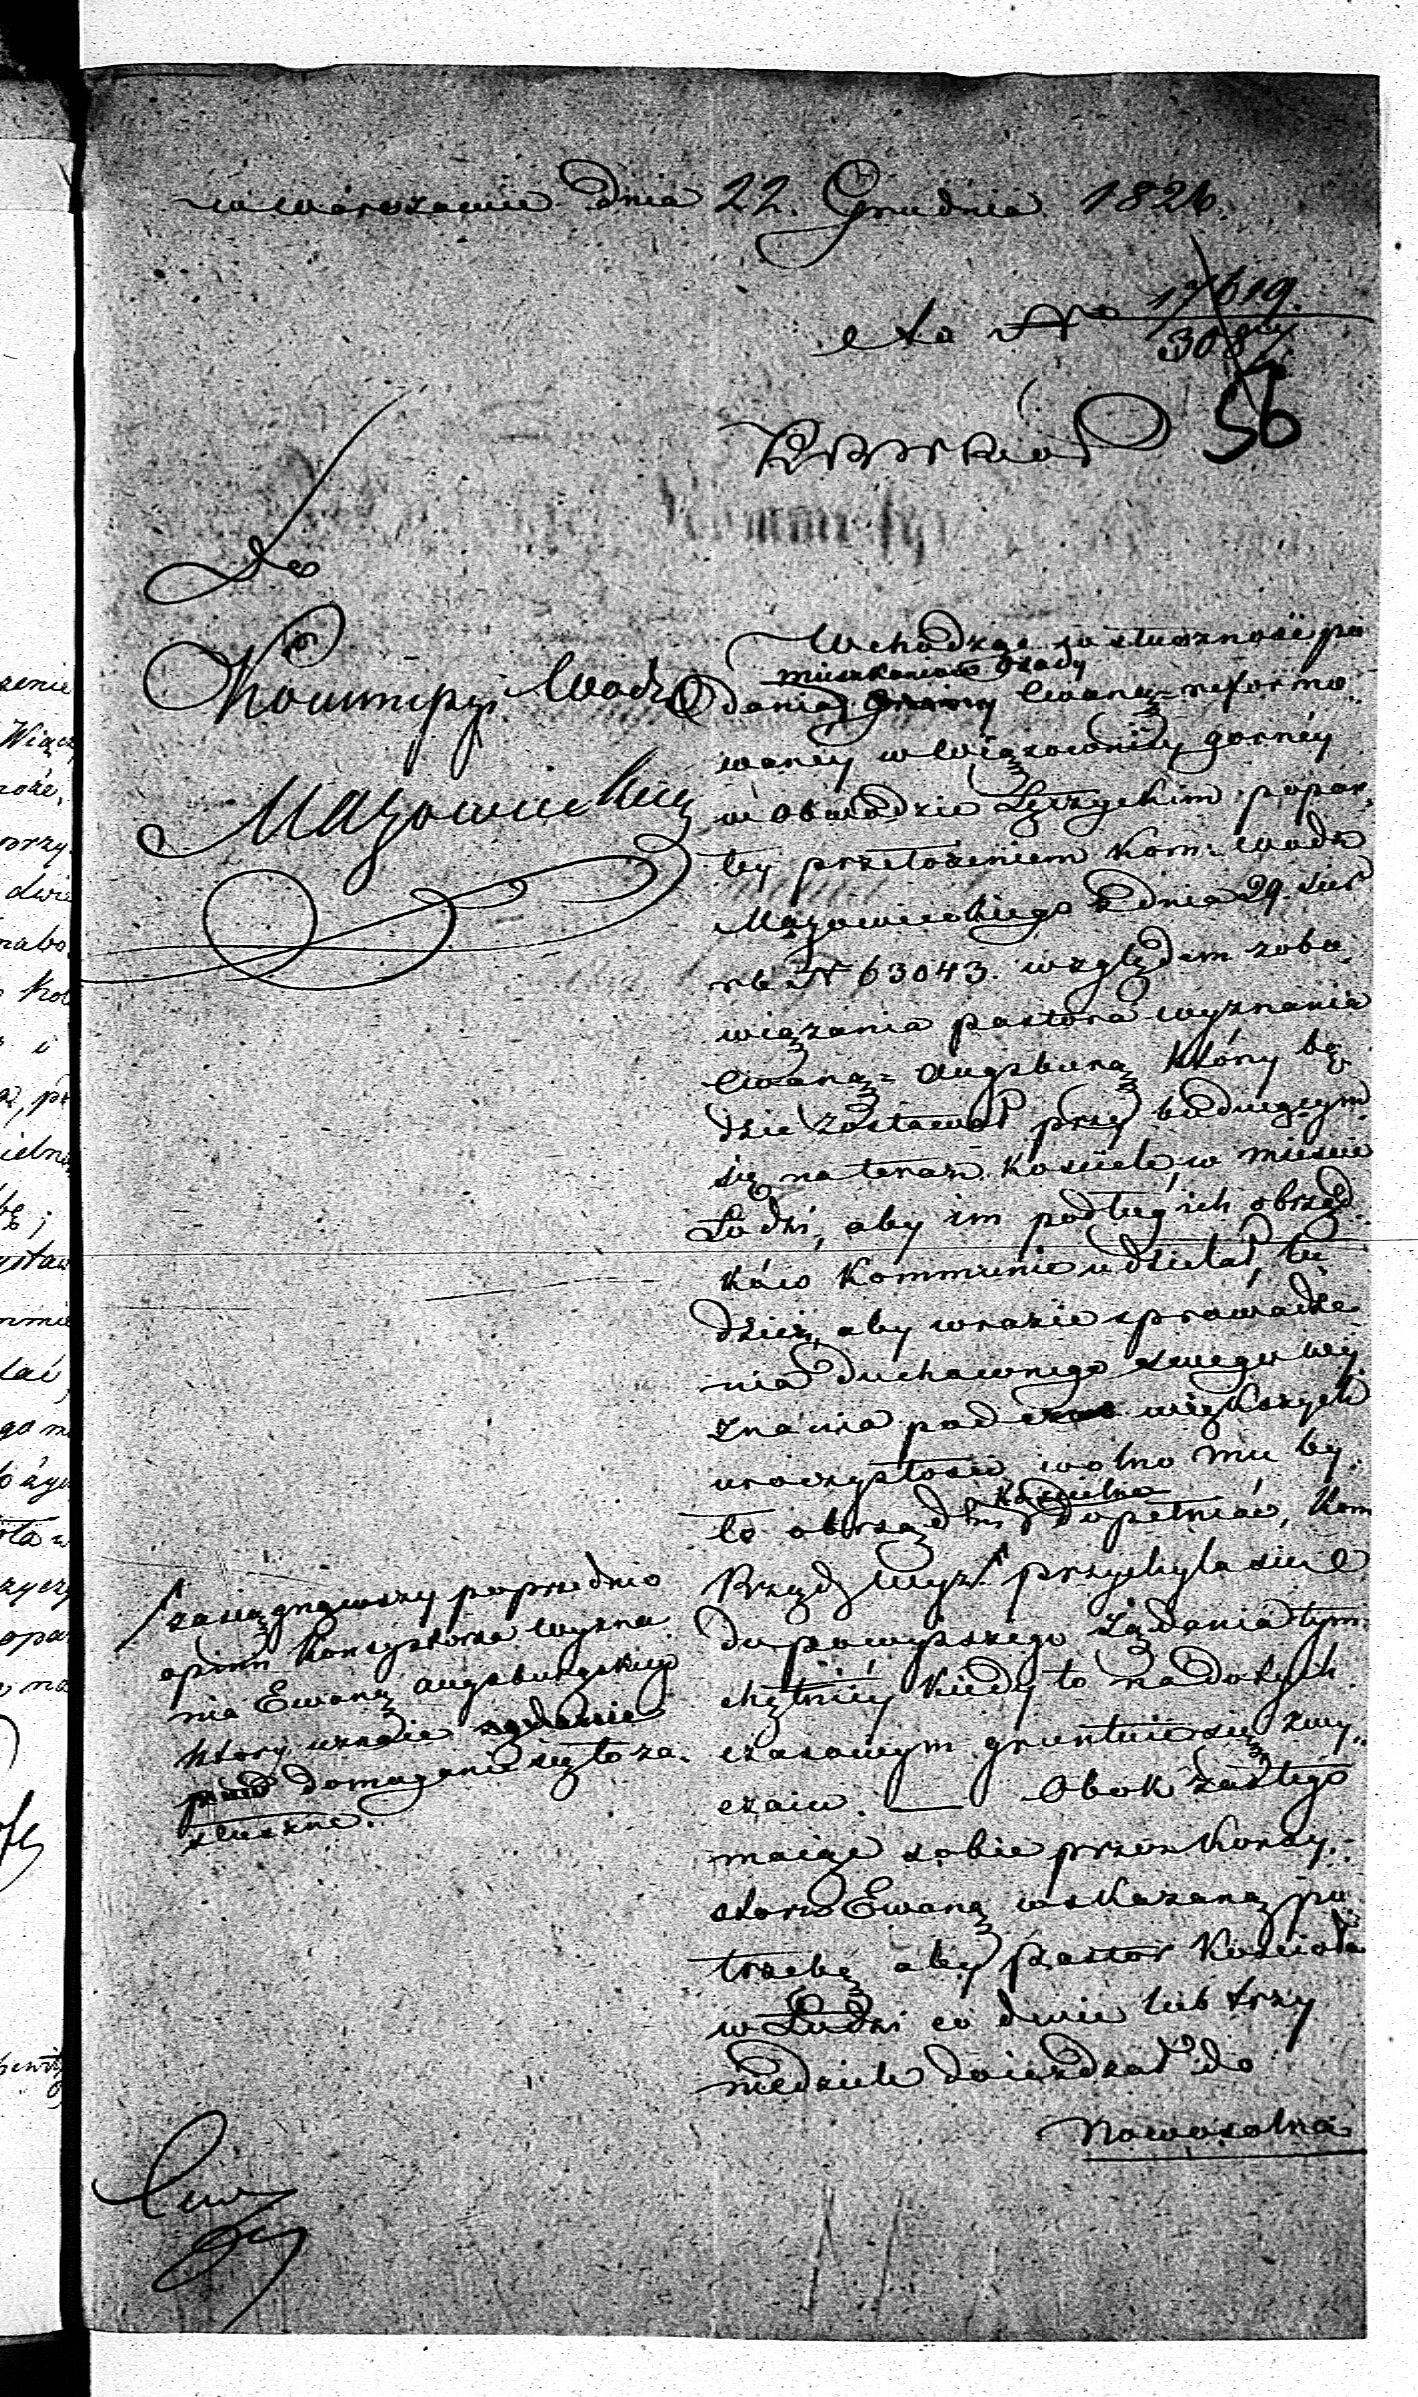 w Warszawie dnia 22. Grudnia 1826.
17619.
308
56
Do
Kommissyi Wodz
Mazowieckiey
Wchodząc w słuszność po
mieszkańców Osady
dania Gminy Ewang= reformo
waney w Wiązowniy gorney
w Obwodzie Łęczyckim popar
tey przełożeniem Kom: Wodz
Mazowieckiego z dnia 29. Sier
rb. N 63043. względem zobo
wiązania pastora wyznania
Ewang= Augsburg który bę
dzie zostawał przy buduiącym
się na teraz Kościele w mieście
Łodzi, aby im podług ich obrząd
ków Kommunie udzielał, tu
dzież, aby w razie sprowadze
nia duchownego swego wy
znania podczas większych
uroczystości wolno mu by
ło obrządki kościelne dopełniać, Kom
Rząd Wyz. przychyla się
do powyższego żądania tym
chętniey kiedy to na dotych
czasowym gruntuie się zwy
czaiu. — Obok zaś tego
maiąc sobie przez Konsy
storz Ewang wskazaną po
trzebę aby Pastor Kościoła
w Łodzi co dwie lub trzy
niedziele doieżdzał do
Nowosolna
/zasięgnąwszy poprzednio
opinii Konsystorza wyzna
nia Ewang Augsburgskiego
który uznaie
domaganie się to za
słuszne.